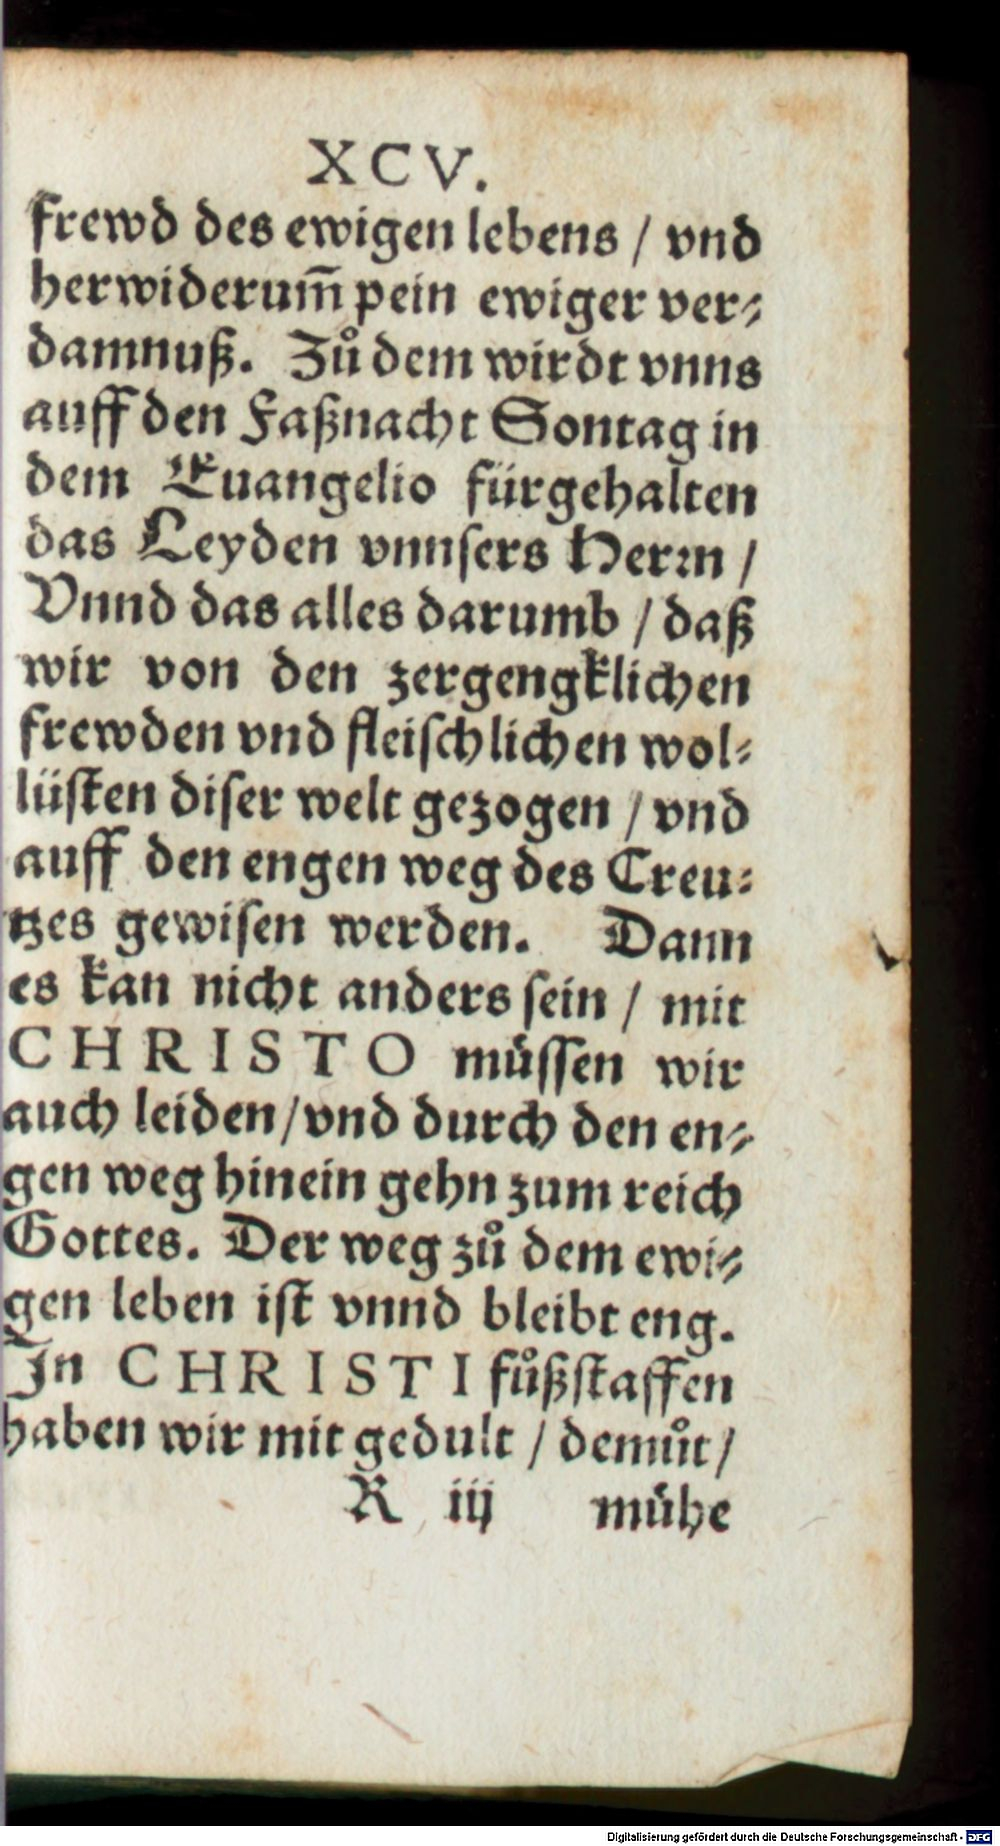 XCV.
frewd des ewigen lebens / vnd
herwiderum̄ pein ewiger ver-
damnuß. Zů dem wirdt vnns
auff den Faßnacht Sontag in
dem Euangelio fürgehalten
das Leyden vnnsers Herꝛn /
Vnnd das alles darumb / daß
wir von den zergengklichen
frewden vnd fleiſchlichen wol-
lüſten diſer welt gezogen / vnd
auff den engen weg des Creu-
tzes gewiſen werden. Dann
es kan nicht anders ſein / mit
CHRISTO müſſen wir
auch leiden / vnd durch den en-
gen weg hinein gehn zum reich
Gottes. Der weg zů dem ewi-
gen leben iſt vnnd bleibt eng.
In CHRISTI fůßſtaffen
haben wir mit gedult / demůt /
R iij mühe
Digitalisierung gefördert durch die Deutsche Forschungsgemeinschaft - DFG